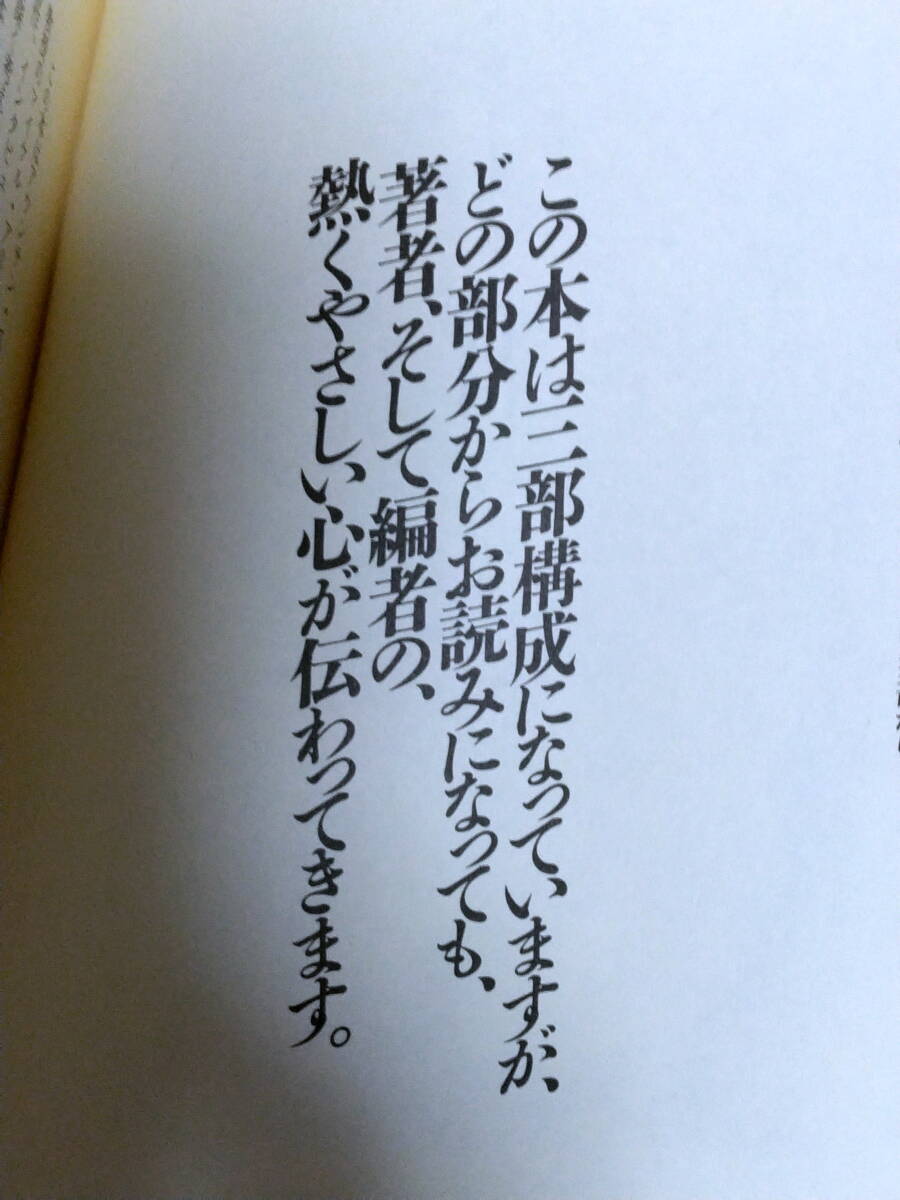 この本は三部構成になっていますが、
どの部分からお読みになっても、
著者、そして編者の、
熱くやさしい心が伝わってきます。